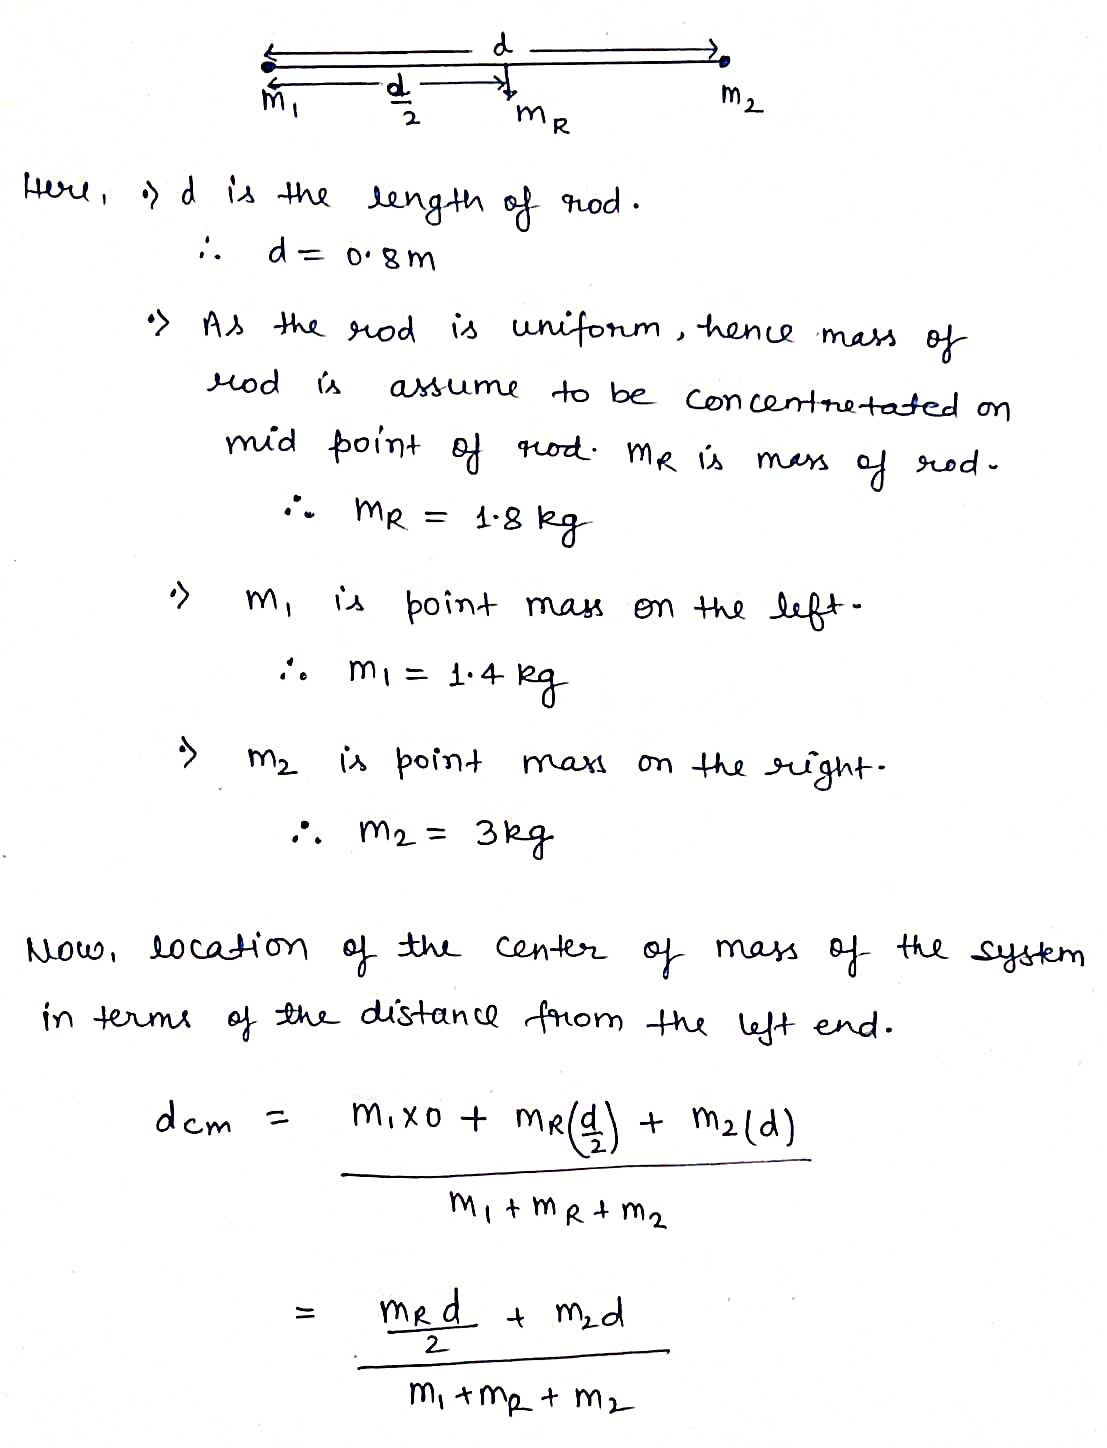 d
m₁ d/2 m_R m₂
Here, •> d is the length of rod.
∴ d = 0.8m
•> As the rod is uniform, hence mass of
rod is assume to be concentretated on
mid point of rod. m_R is mass of rod.
∴ m_R = 1.8 kg
•> m₁ is point mass on the left.
∴ m₁ = 1.4 kg
•> m₂ is point mass on the right.
∴ m₂ = 3kg
Now, location of the center of mass of the system
in terms of the distance from the left end.
dcm = (m₁×0 + m_R(d/2) + m₂(d)) / (m₁ + m_R + m₂)
= (m_R d/2 + m₂d) / (m₁ + m_R + m₂)